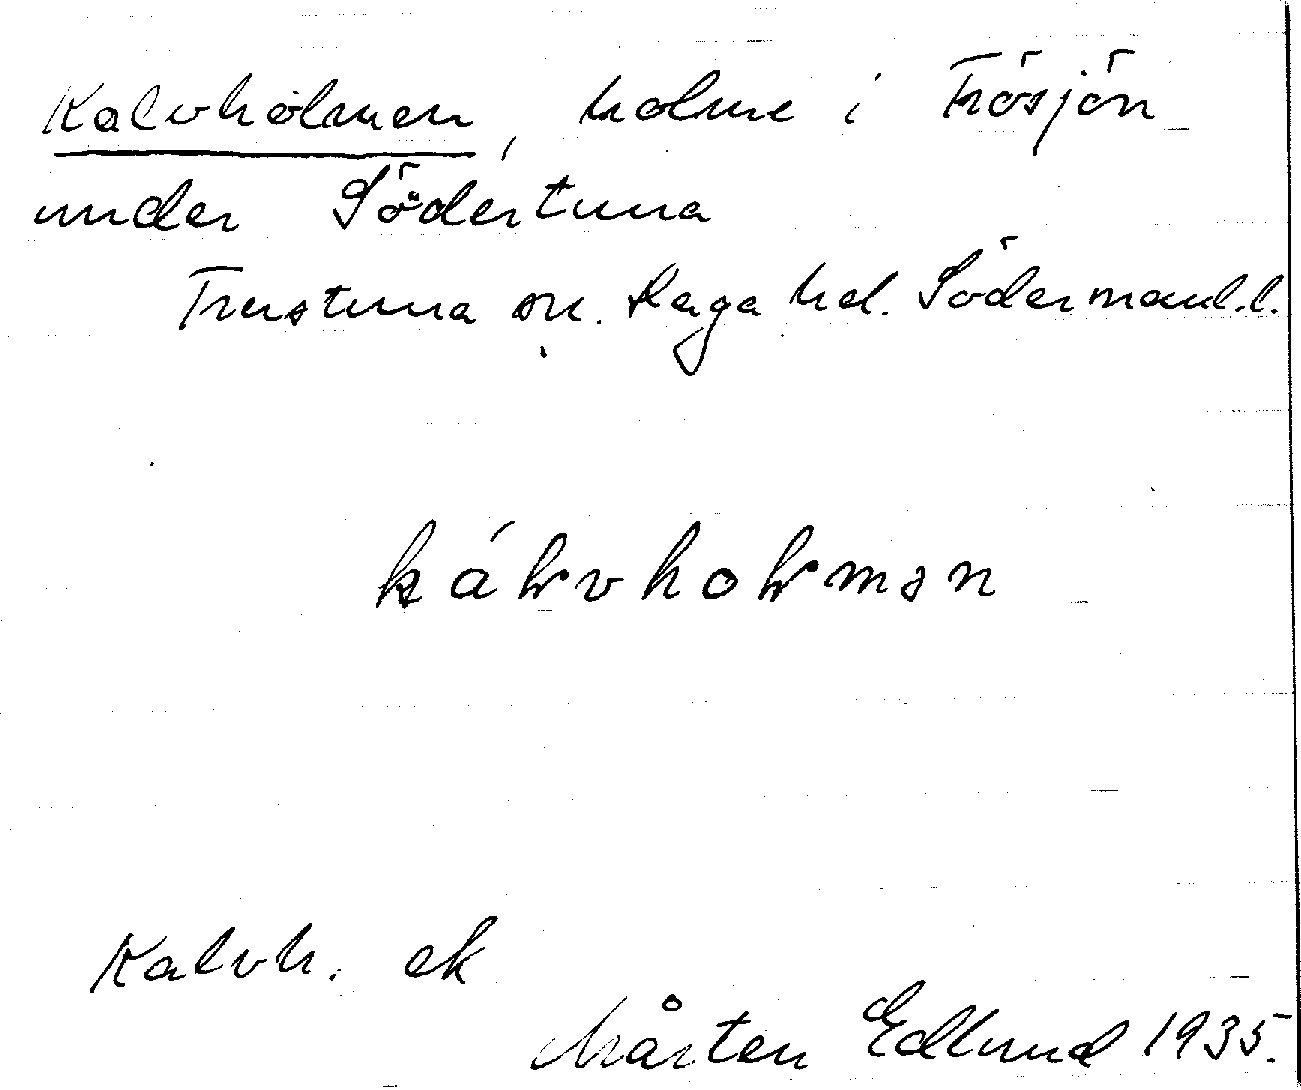 Kalvholmen, holme i Frösjön
under Södertuna
Frustuna sn. Daga hd. Södermanl.l.
kálvholmən
Kalvh. ek
Mårten Edlund 1935.